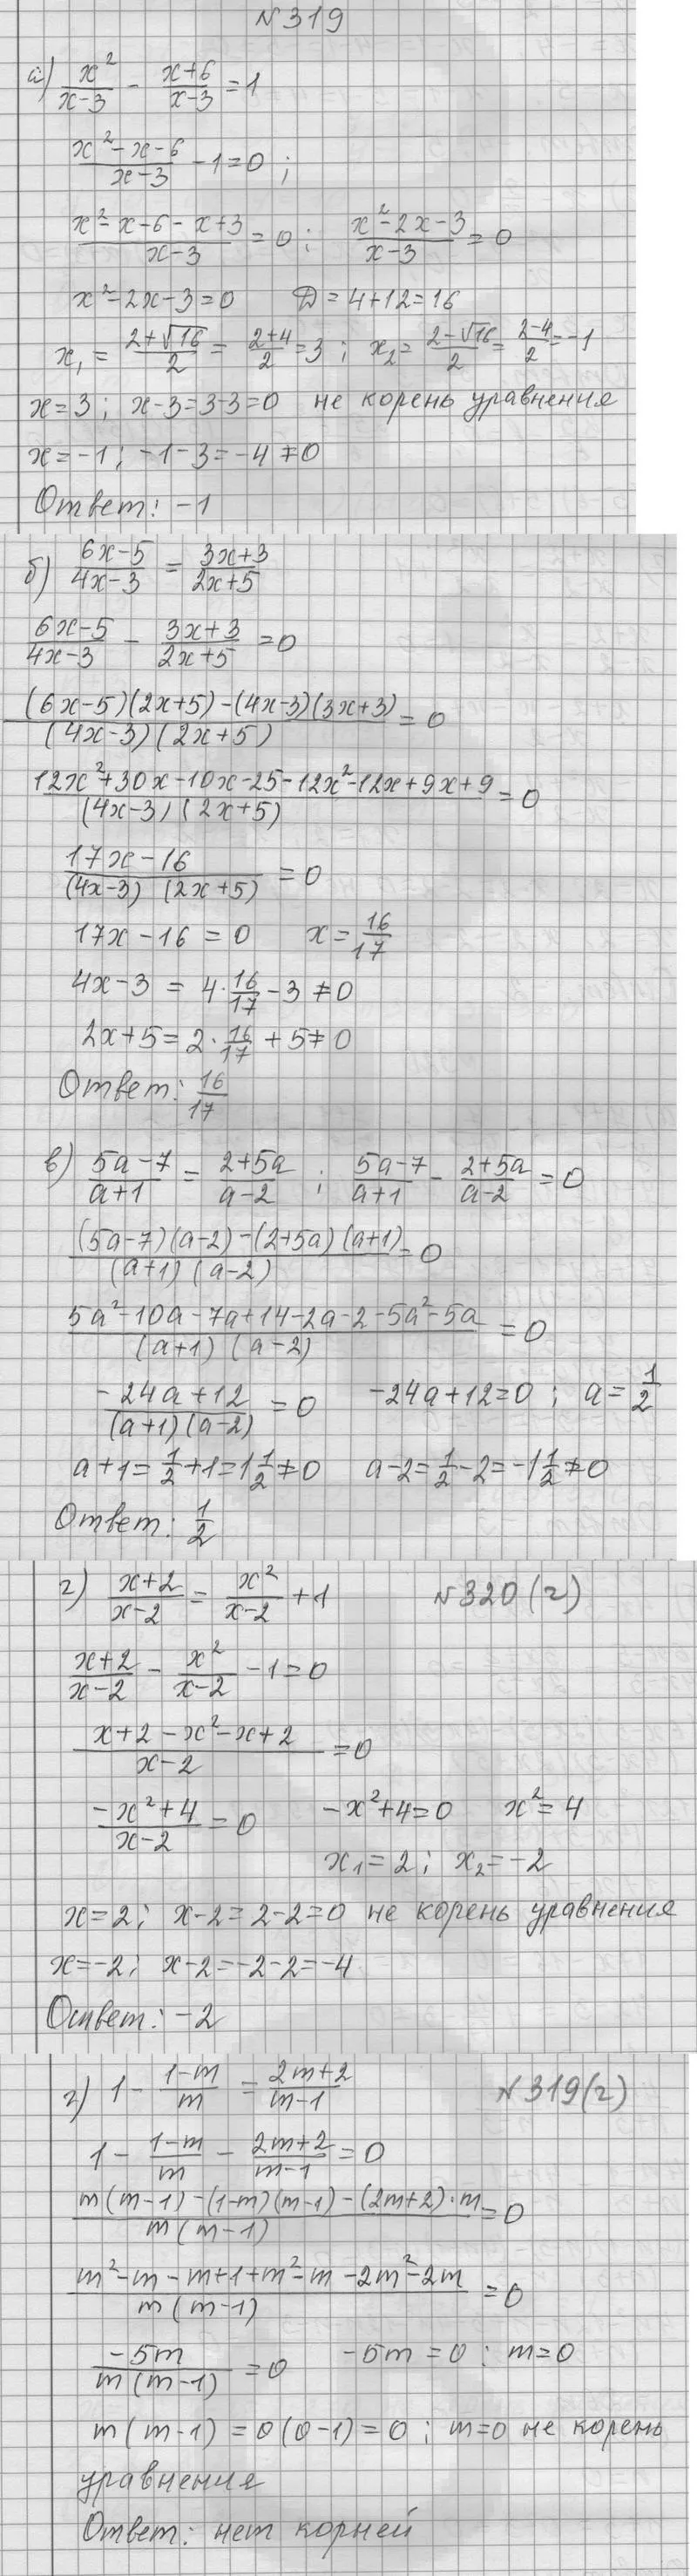 №319
а) x²/(x-3) - (x+6)/(x-3) = 1
(x²-x-6)/(x-3) - 1 = 0 ;
(x²-x-6-x+3)/(x-3) = 0 ; (x²-2x-3)/(x-3) = 0
x²-2x-3=0 D=4+12=16
x₁ = (2+√16)/2 = (2+4)/2 = 3 ; x₂ = (2-√16)/2 = (2-4)/2 = -1
x=3 ; x-3=3-3=0 не корень уравнения
x=-1 ; -1-3=-4≠0
Ответ: -1
б) (6x-5)/(4x-3) = (3x+3)/(2x+5)
(6x-5)/(4x-3) - (3x+3)/(2x+5) = 0
((6x-5)(2x+5)-(4x-3)(3x+3))/((4x-3)(2x+5)) = 0
(12x²+30x-10x-25-12x²-12x+9x+9)/((4x-3)(2x+5)) = 0
(17x-16)/((4x-3)(2x+5)) = 0
17x-16=0 x=16/17
4x-3 = 4·16/17-3≠0
2x+5=2·16/17+5≠0
Ответ: 16/17
в) (5a-7)/(a+1) = (2+5a)/(a-2) ; (5a-7)/(a+1) - (2+5a)/(a-2) = 0
((5a-7)(a-2)-(2+5a)(a+1))/((a+1)(a-2)) = 0
(5a²-10a-7a+14-2a-2-5a²-5a)/((a+1)(a-2)) = 0
(-24a+12)/((a+1)(a-2)) = 0 -24a+12=0 ; a=1/2
a+1=1/2+1=1 1/2≠0 a-2=1/2-2=-1 1/2≠0
Ответ: 1/2
г) (x+2)/(x-2) = x²/(x-2) + 1 №320(г)
(x+2)/(x-2) - x²/(x-2) - 1 = 0
(x+2-x²-x+2)/(x-2) = 0
(-x²+4)/(x-2) = 0 -x²+4=0 x²=4
x₁=2 ; x₂=-2
x=2 ; x-2=2-2=0 не корень уравнения
x=-2 ; x-2=-2-2=-4
Ответ: -2
г) 1 - (1-m)/m = (2m+2)/(m-1) №319(г)
1 - (1-m)/m - (2m+2)/(m-1) = 0
(m(m-1)-(1-m)(m-1)-(2m+2)·m)/(m(m-1)) = 0
(m²-m-m+1+m²-m-2m²-2m)/(m(m-1)) = 0
(-5m)/(m(m-1)) = 0 -5m=0 ; m=0
m(m-1)=0(0-1)=0 ; m=0 не корень
уравнения
Ответ: нет корней